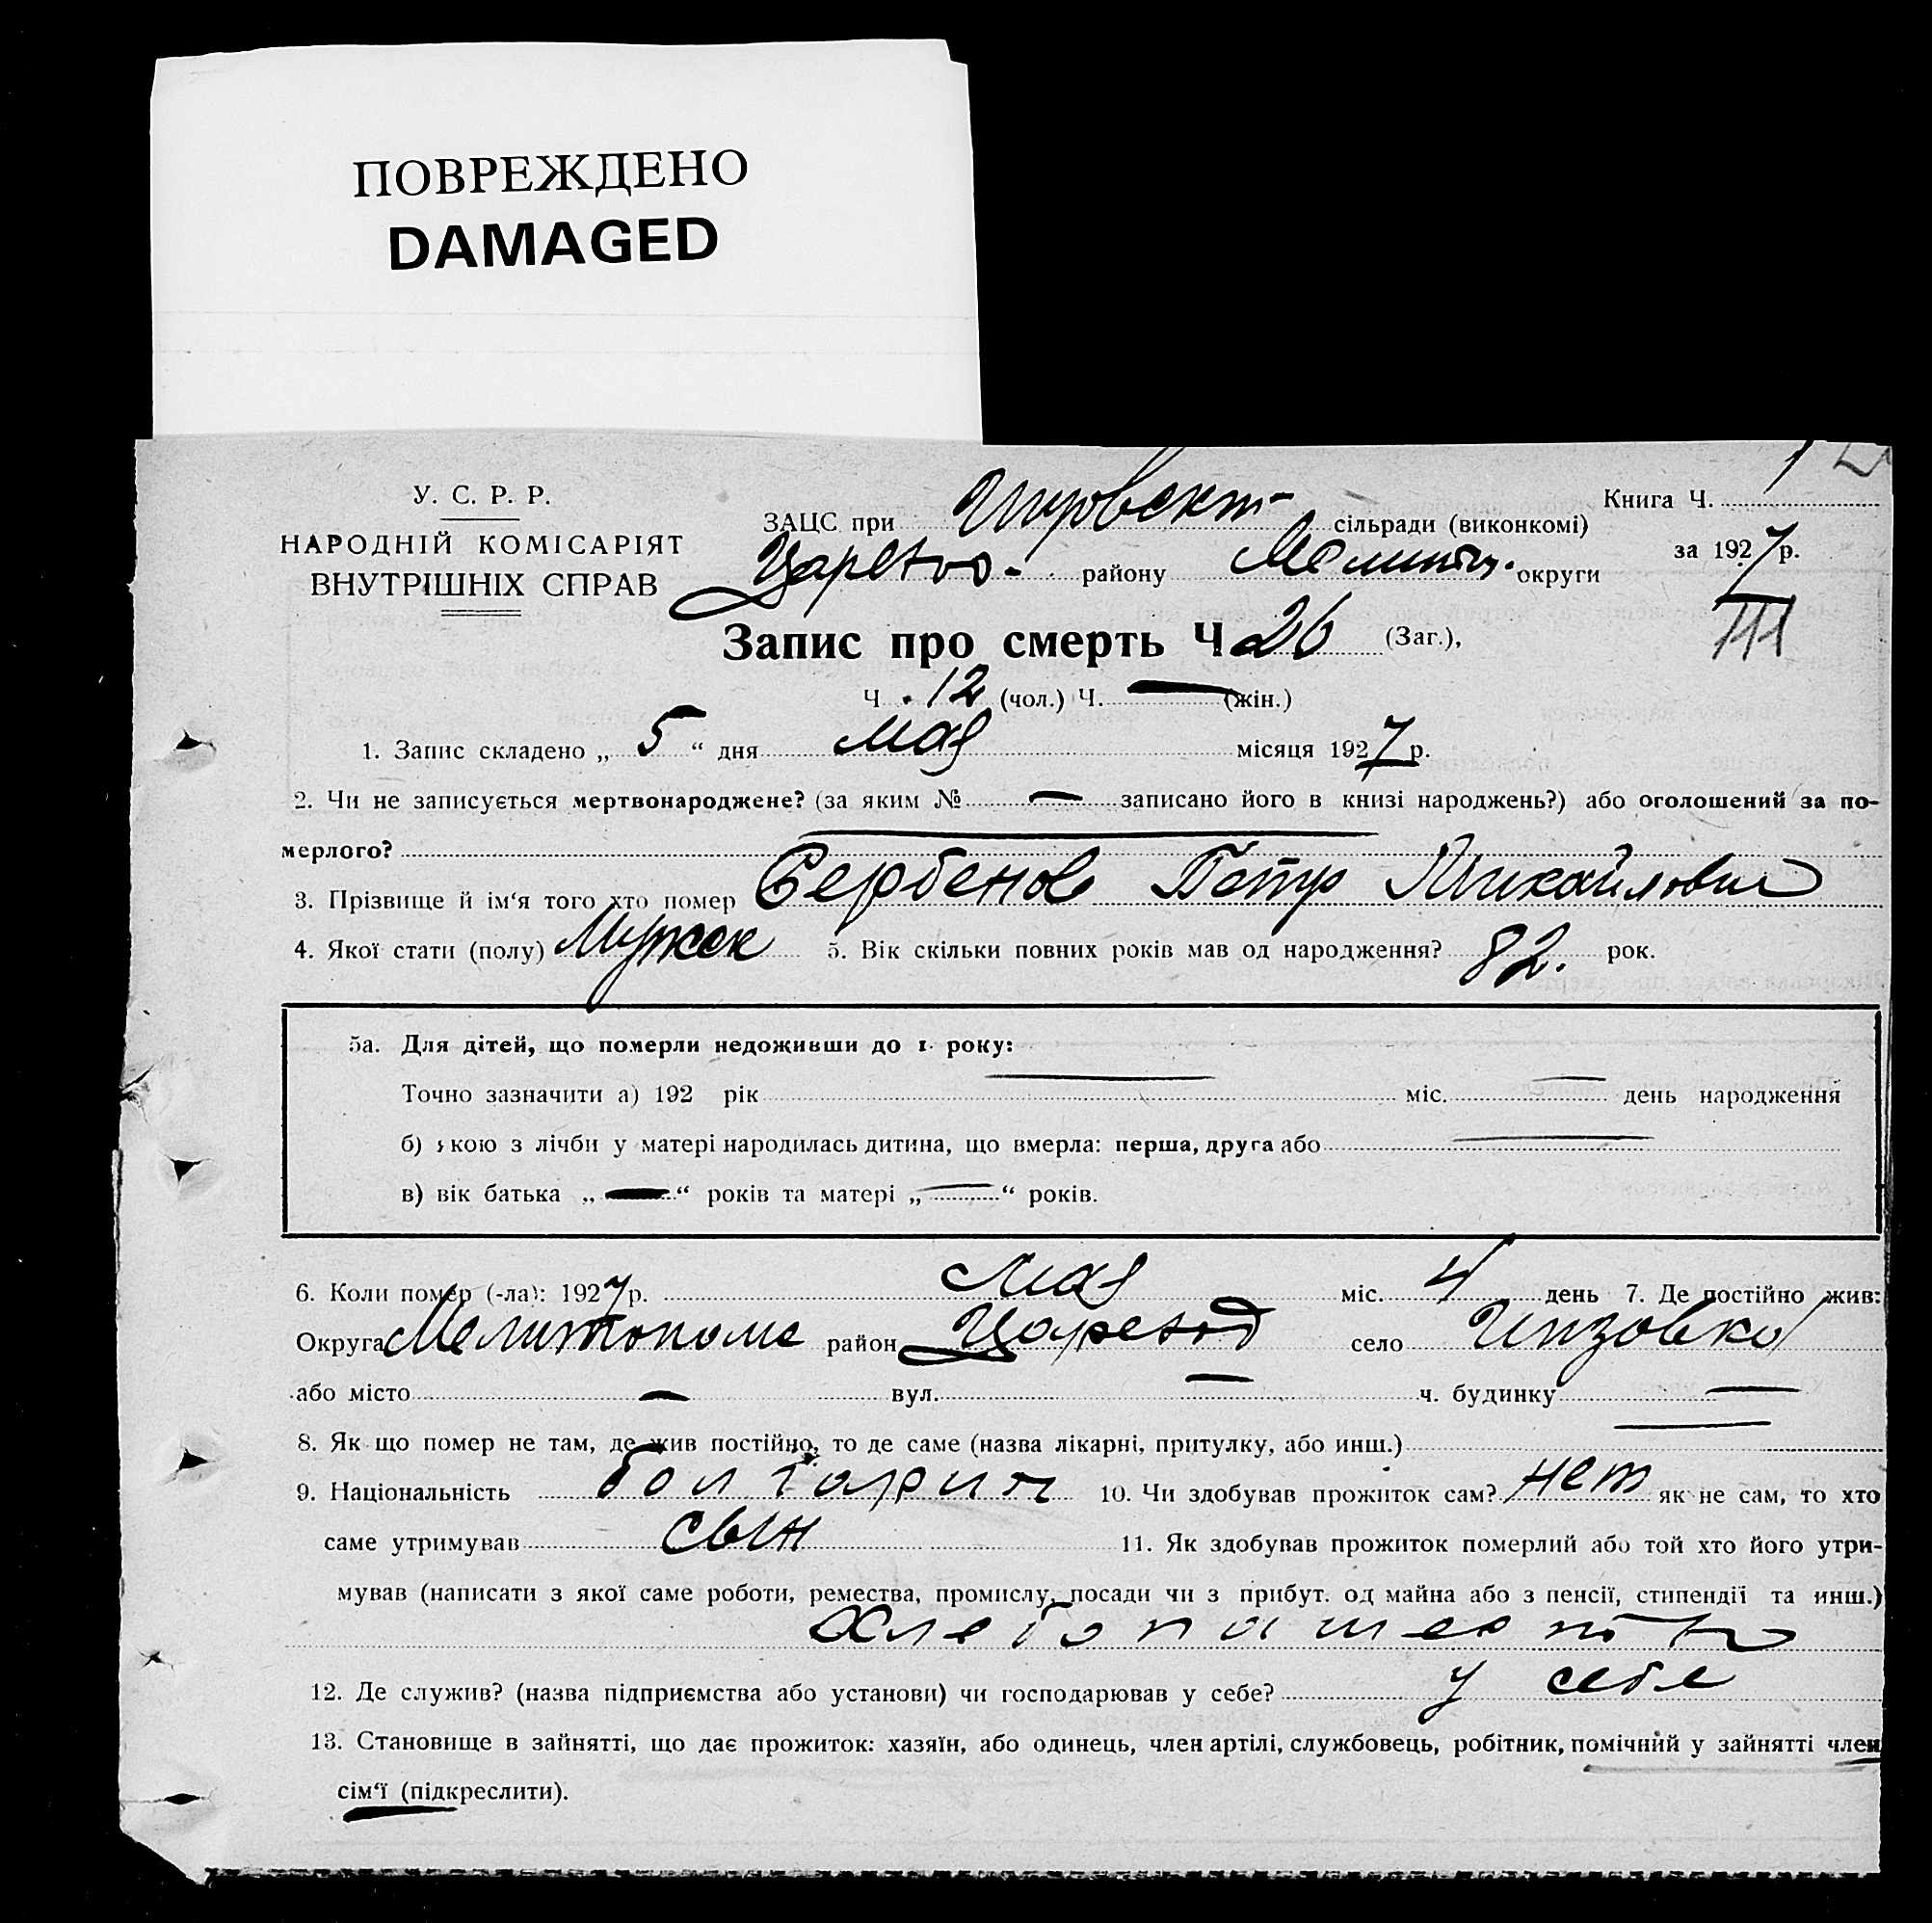 ПОВРЕЖДЕНО
DAMAGED
У. С. Р. Р.
НАРОДНІЙ КОМІСАРІЯТ
ВНУТРІШНІХ СПРАВ
Книга Ч.
ЗАЦС при сільради (виконкомі)
за 1927 р.
району округи
III
Запис про смерть Ч 26 (Заг.),
Ч. 12 (чол.) Ч. — (жін.)
1. Запис складено „ 5 “ дня мая місяця 1927 р.
2. Чи не записується мертвонароджене? (за яким № — записано його в книзі народжень?) або оголошений за по-
мерлого? —
3. Прізвище й ім‘я того хто помер Сербенов Петр Михайлович
4. Якої стати (полу) Мужск 5. Вік скільки повних років мав од народження? 82. рок.
5а. Для дітей, що померли недоживши до 1 року:
Точно зазначити а) 192 рік — міс. — день народження
б) якою з лічби у матері народилась дитина, що вмерла: перша, друга або —
в) вік батька „ — “ років та матері „ — “ років.
6. Коли помер (-ла): 1927 р. Мая міс. 4 день 7. Де постійно жив:
Округа район село
або місто — вул. — ч. будинку —
8. Як що помер не там, де жив постійно, то де саме (назва лікарні, притулку, або инш.) —
9. Національність болгарин 10. Чи здобував прожиток сам? нет як не сам, то хто
саме утримував сын 11. Як здобував прожиток померлий або той хто його утри-
мував (написати з якої саме роботи, ремества, промислу, посади чи з прибут. од майна або з пенсії, стипендії та инш.)
12. Де служив? (назва підприємства або установи) чи господарював у себе? у себе
13. Становище в зайнятті, що дає прожиток: хазяїн, або одинець, член артілі, службовець, робітник, помічний у зайнятті член
сім‘ї (підкреслити).